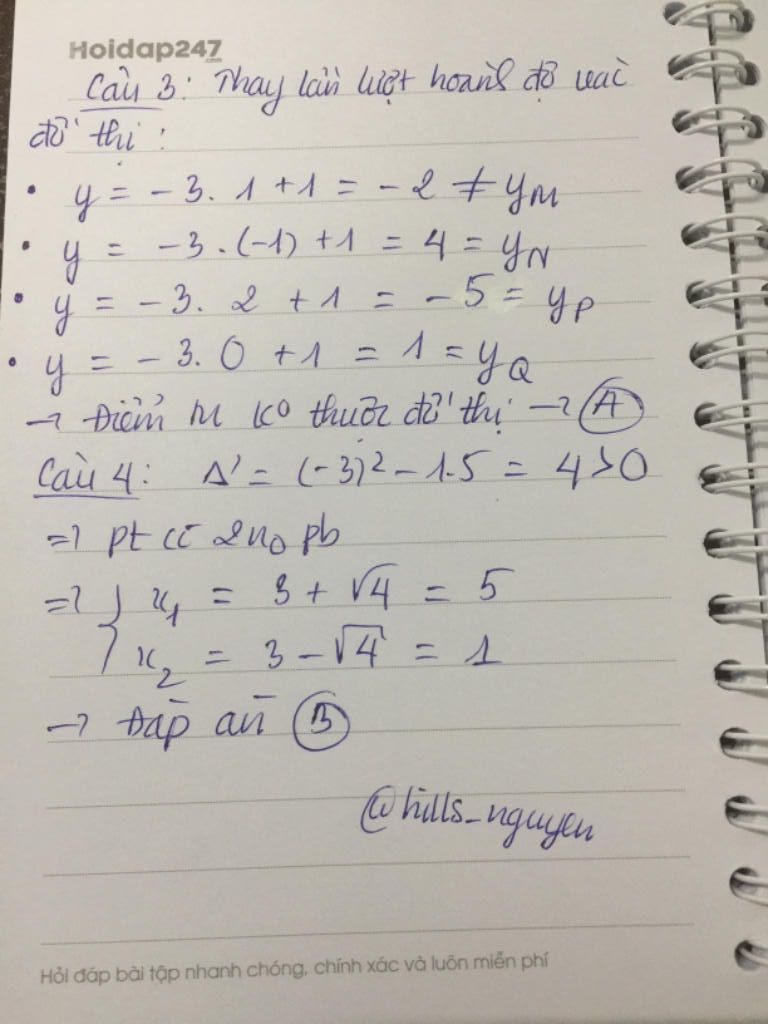 Hoidap247
.com
Câu 3: Thay lần lượt hoành độ vào
đồ thị:
• y = -3. 1 + 1 = -2 ≠ yM
• y = -3.(-1) + 1 = 4 = yN
• y = -3. 2 + 1 = -5 = yP
• y = -3. 0 + 1 = 1 = yQ
→ Điểm M ko thuộc đồ thị → A
Câu 4: Δ' = (-3)² - 1.5 = 4 > 0
=> pt có 2no pb
=> { x₁ = 3 + √4 = 5
x₂ = 3 - √4 = 1
→ Đáp án B
@hills_nguyen
Hỏi đáp bài tập nhanh chóng, chính xác và luôn miễn phí